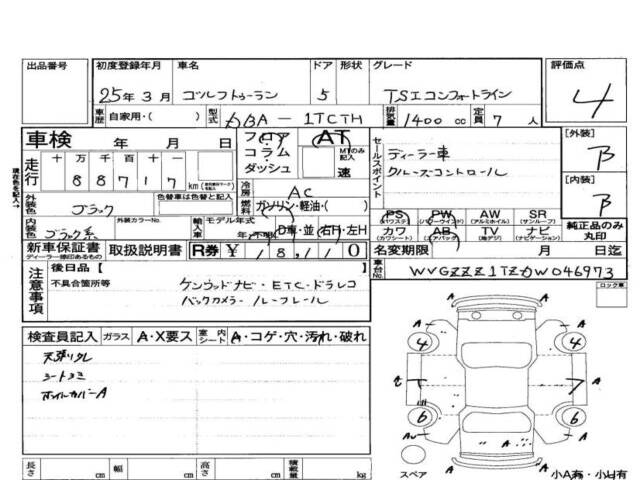 出品番号 初度登録年月 車名 ドア 形状 グレード 評価点
25年3月 ゴルフトゥーラン 5 TSIコンフォートライン 4
車歴 自家用・( ) 型式 DBA-1TCTH 排気量 1400cc 定員 7人
車検 年 月 日 フロア・コラム・ダッシュ AT MTのみ記入 速
走行 十万千百十一 88717 km
セールスポイント ディーラー車
クルーズコントロール
[外装] B
[内装] B
純正品のみ丸印
現在色を記入→
外装色 ブラック 色替車は色替と記入
冷房 AC
燃料 ガソリン・軽油・( )
内装色 ブラック系 外装カラーNo. 輸入車 モデル年式 年・不明 D車・並 右H・左H
PS (パワステ) PW (パワーウインド) AW (アルミホイル) SR (サンルーフ)
カワ (カワシート) AB (エアバック) TV (地デジ) ナビ (ナビゲーション)
新車保証書 ディーラー捺印あるもの 取扱説明書 R券 ¥ 18,110
名変期限 月 日迄
車台No. WVGZZZ1TZDW046973
ロック車
注意事項 後日品[ ]
不具合箇所等 ケンウッドナビ・ETC・ドラレコ
バックカメラ・ルーフレール
検査員記入 ガラス A・X要ス 室内シート A・コゲ・穴・汚れ・破れ
天張りタレ
シートスミ
ホイルカバーA
A A
4 4
A A
6 6
A A
スペア 小A有・小U有
長さ cm 幅 cm 高さ cm 積載量 kg